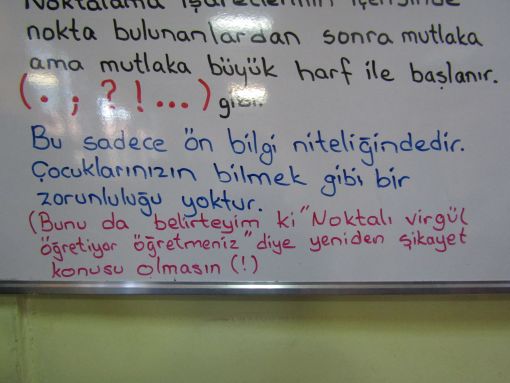 Noktalama işaretlerinin içeriğinde
nokta bulunanlardan sonra mutlaka
ama mutlaka büyük harf ile başlanır.
(. ; ? ! ...) gibi.
Bu sadece ön bilgi niteliğindedir.
Çocuklarınızın bilmek gibi bir
zorunluluğu yoktur.
(Bunu da belirteyim ki "Noktalı virgül
öğretiyor öğretmeniz" diye yeniden şikayet
konusu olmasın (!)